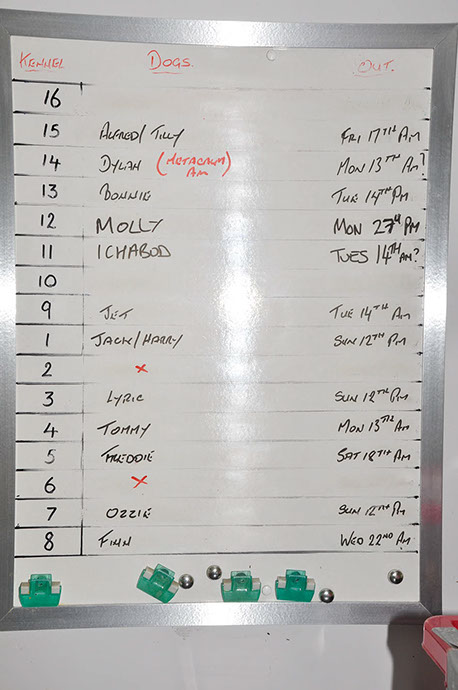 KENNEL DOGS. OUT.
16
15 ALFRED/TILLY FRI 17TH AM
14 DYLAN (METACALM) AM MON 13TH AM?
13 BONNIE TUE 14TH PM
12 MOLLY MON 27TH PM
11 ICHABOD TUES 14TH AM?
10
9 JET TUE 14TH AM
1 JACK/HARRY SUN 12TH PM
2 x
3 LYRIC SUN 12TH PM
4 TOMMY MON 13TH AM
5 FREDDIE SAT 18TH AM
6 x
7 OZZIE SUN 12TH PM
8 FINN WED 22ND AM